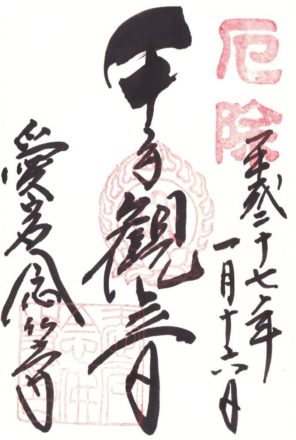 厄除
平成二十七年
一月十六日
千手觀音
愛宕念仏寺